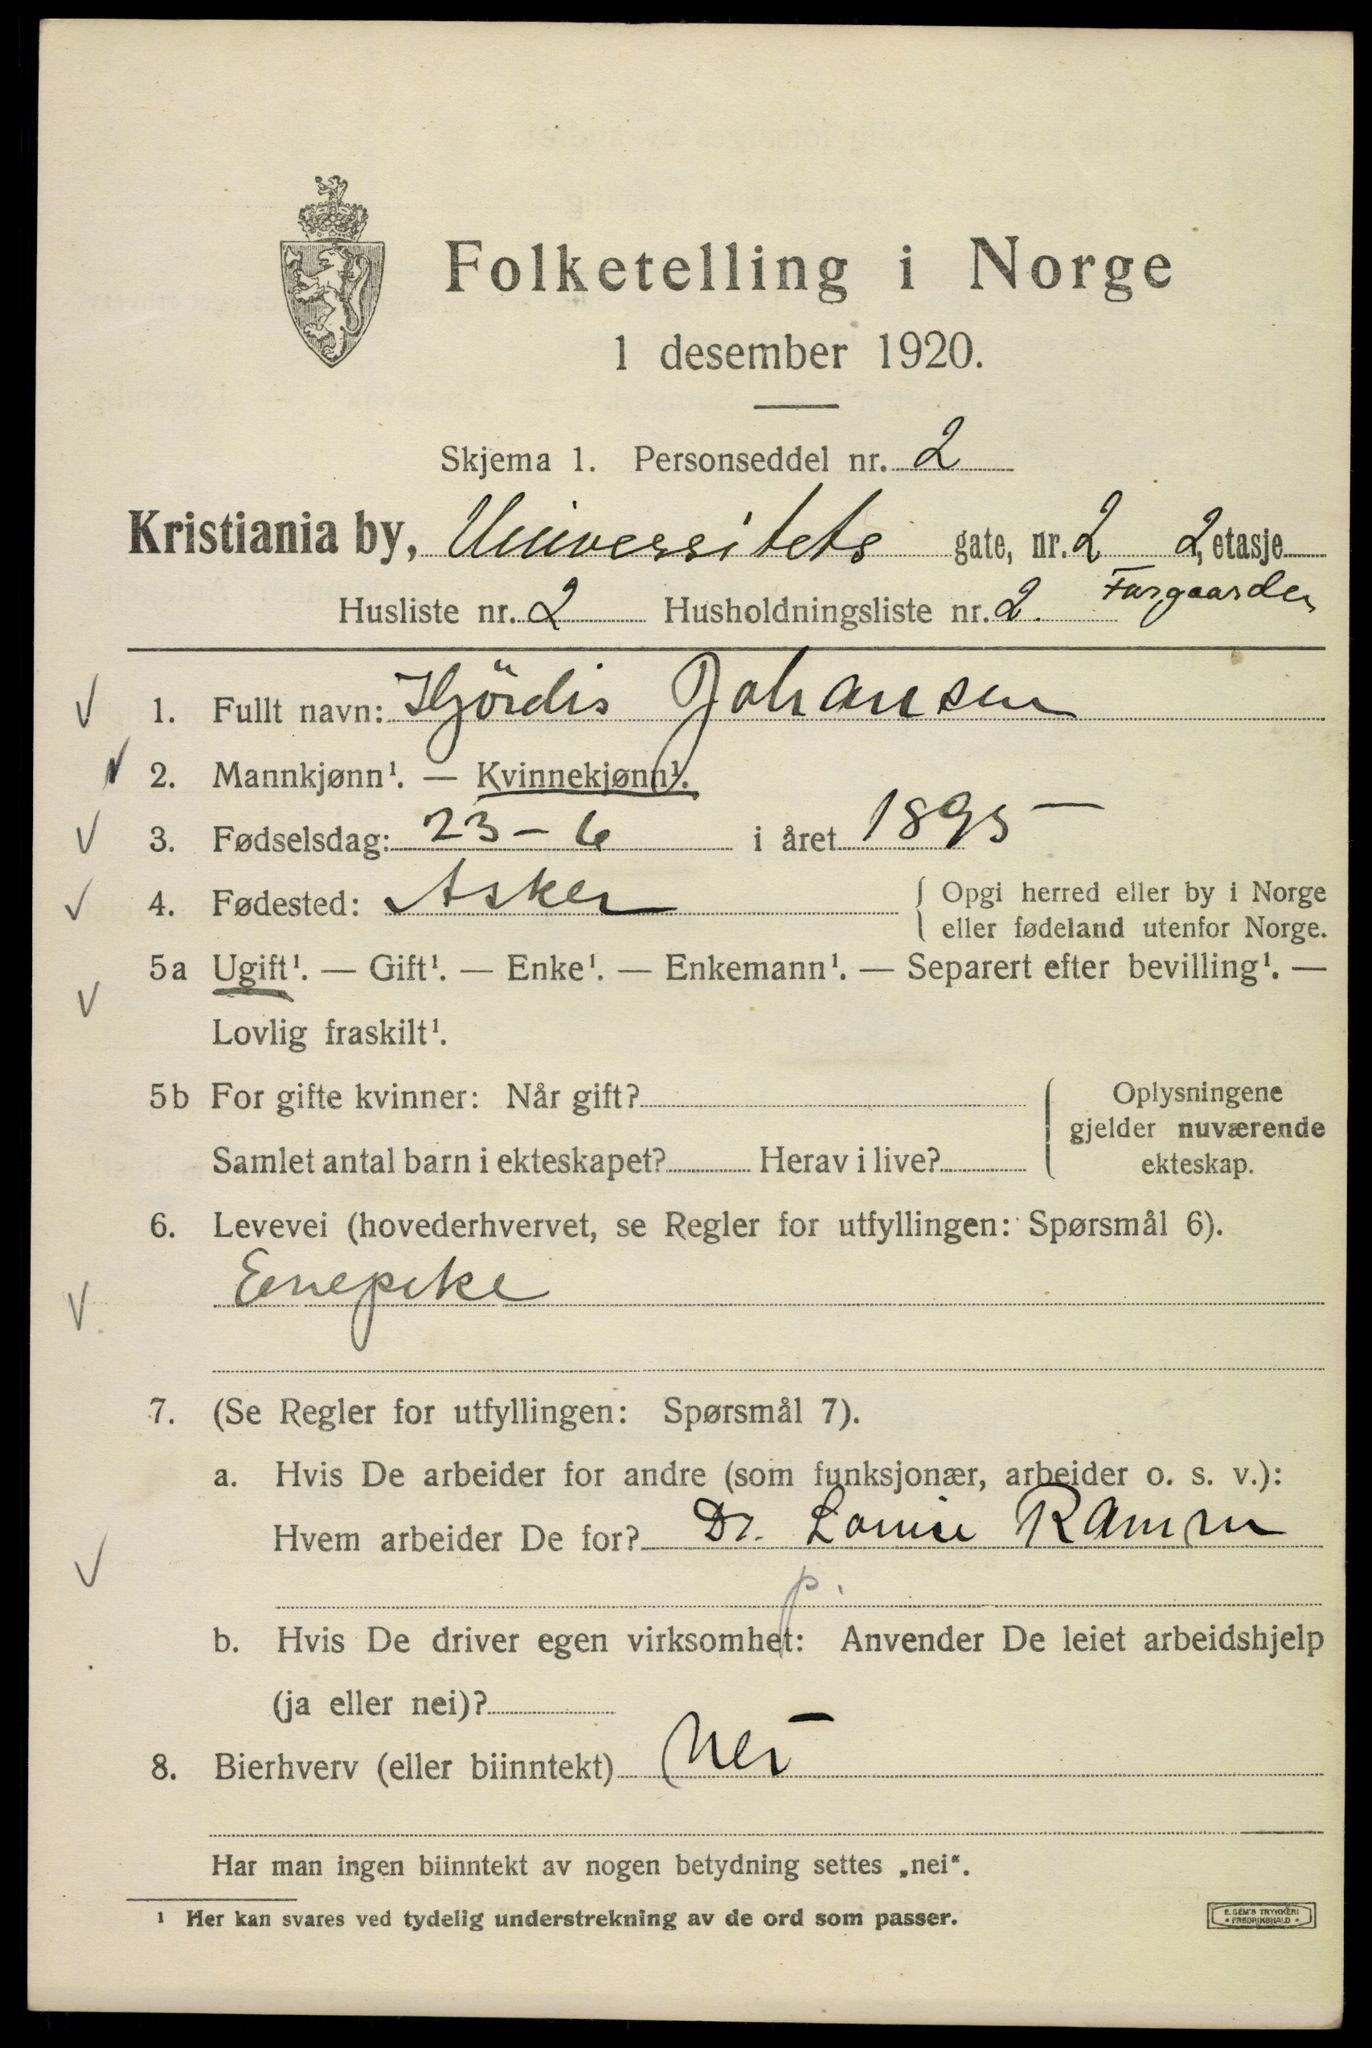 Folketelling i Norge
1 desember 1920.
Skjema 1. Personseddel nr. 2
Kristiania by, Universitets gate, nr. 2 2, etasje
Husliste nr. 2 Husholdningsliste nr. 2. Forgaarden
1. Fullt navn: Hjördis Johansen
2. Mannkjønn¹. — Kvinnekjønn¹.
3. Fødselsdag: 23 – 6 i året 1895 —
4. Fødested: Asker { Opgi herred eller by i Norge
eller fødeland utenfor Norge.
5a Ugift¹. — Gift¹. — Enke¹. — Enkemann¹. — Separert efter bevilling¹. —
Lovlig fraskilt¹.
5b For gifte kvinner: Når gift? { Oplysningene
gjelder nuværende
Samlet antal barn i ekteskapet? Herav i live? ekteskap.
6. Levevei (hovederhvervet, se Regler for utfyllingen: Spørsmål 6).
Enepike
7. (Se Regler for utfyllingen: Spørsmål 7).
a. Hvis De arbeider for andre (som funksjonær, arbeider o. s. v.):
Hvem arbeider De for? Dr. Louise Ramm
p.
b. Hvis De driver egen virksomhet: Anvender De leiet arbeidshjelp
(ja eller nei)?
8. Bierhverv (eller biinntekt) Nei
Har man ingen biinntekt av nogen betydning settes „nei“.
¹ Her kan svares ved tydelig understrekning av de ord som passer.
E. SEM'S TRYKKERI
* FREDRIKSHALD *